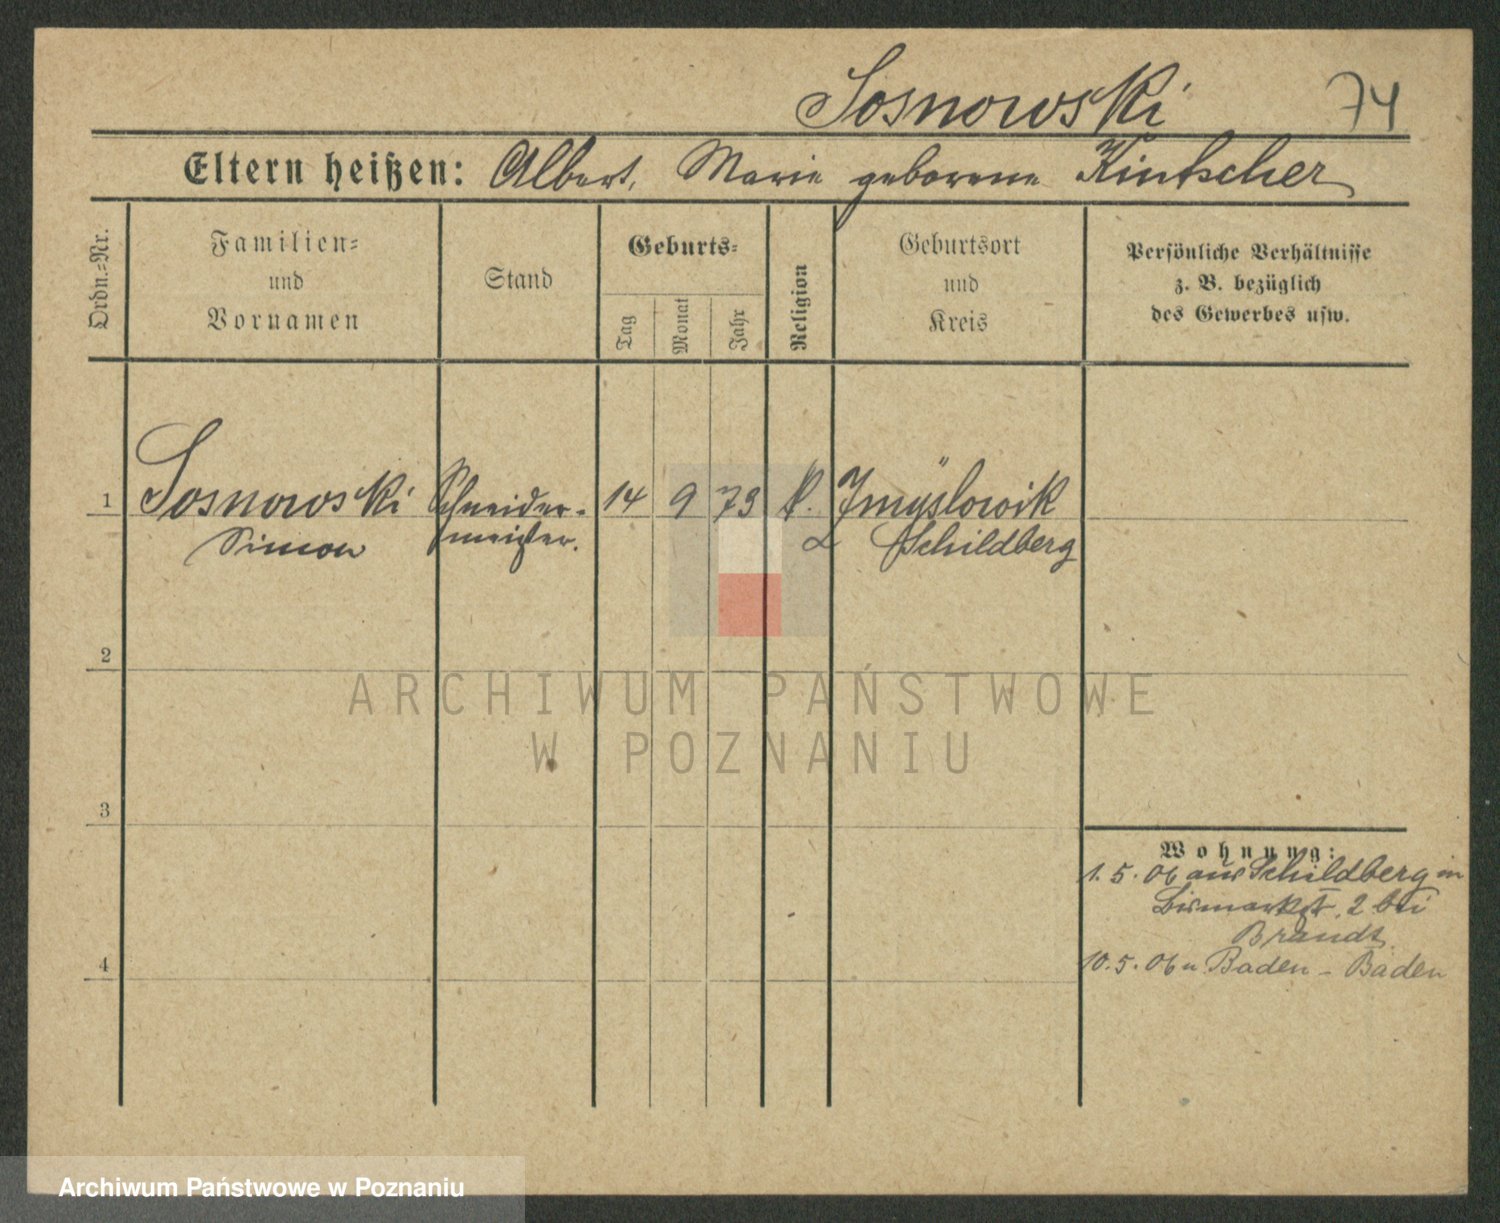 Sosnowski 74
Eltern heißen: Albert, Marie geborene Kintscher
Ordn.=Nr.
Familien=
und
Vornamen
Stand
Geburts=
Tag
Monat
Jahr
Religion
Geburtsort
und
Kreis
Persönliche Verhältnisse
z. B. bezüglich
des Gewerbes usw.
1 Sosnowski Schneider- 14 9 79 k.
Simon meister. Schildberg
2
ARCHIWUM PAŃSTWOWE
W POZNANIU
3
4
Wohnung:
1. 5. 06 aus Schildberg in
Bismarkst. 2 bei
Brandt
10. 5. 06 n Baden - Baden
Archiwum Państwowe w Poznaniu